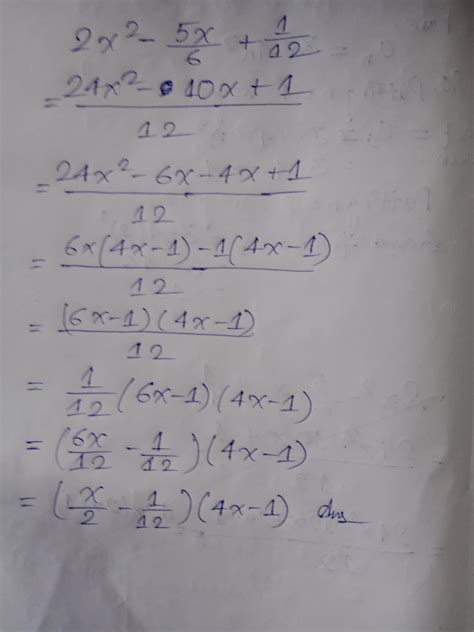 2x² - 5x/6 + 1/12
= (24x² - 10x + 1)/12
= (24x² - 6x - 4x + 1)/12
= (6x(4x-1) - 1(4x-1))/12
= ((6x-1)(4x-1))/12
= 1/12 (6x-1)(4x-1)
= (6x/12 - 1/12)(4x-1)
= (x/2 - 1/12)(4x-1) Ans